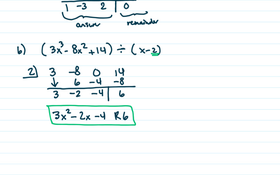 1 -3 2 0
answer remainder
b) (3x³ - 8x² + 14) ÷ (x - 2)
2) 3 -8 0 14
↓ 6 -4 -8
3 -2 -4 6
3x² - 2x - 4 R6